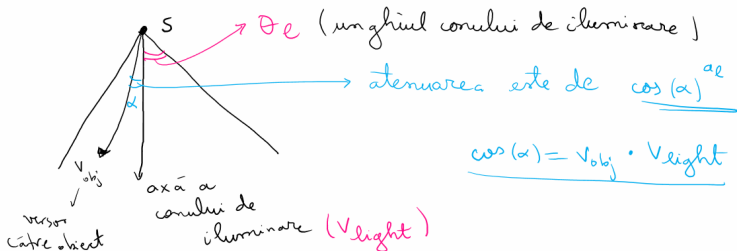 S
θl (unghiul conului de iluminare)
atenuarea este de cos(α)^al
α
cos(α) = vobj · vlight
vobj
versor
către obiect
axă a
conului de
iluminare (vlight)